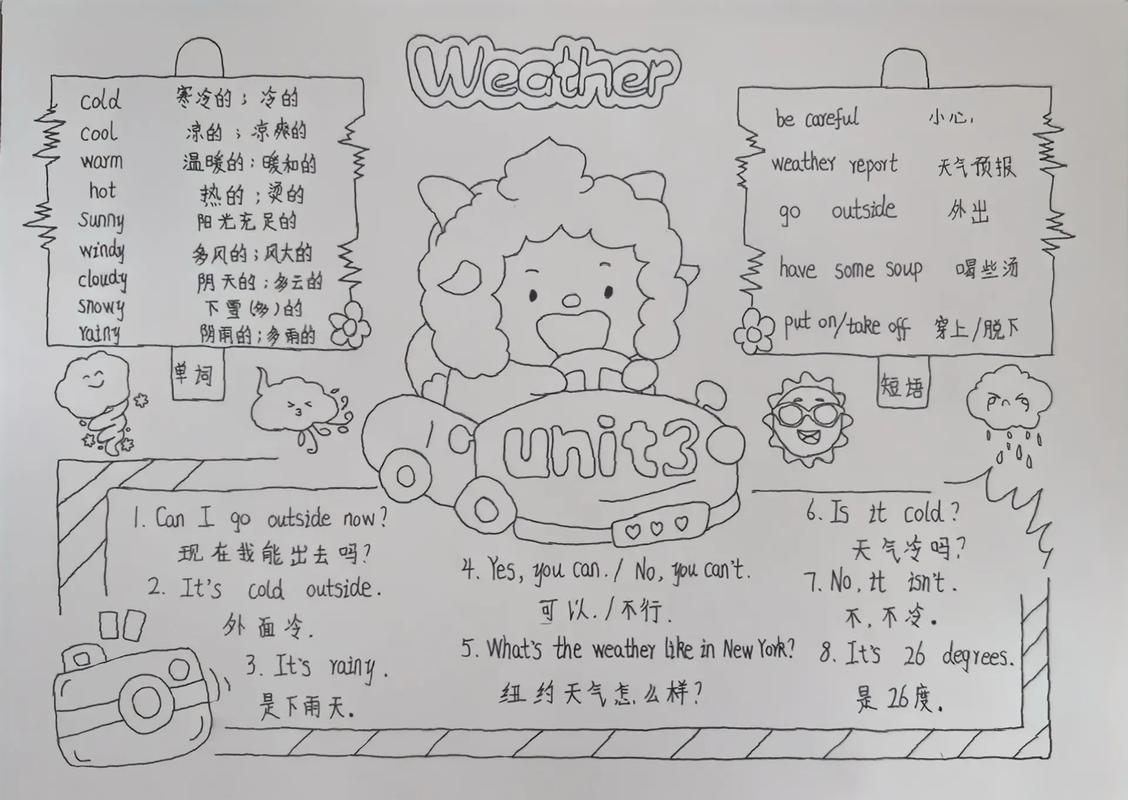 Weather
cold 寒冷的；冷的
cool 凉的；凉爽的
warm 温暖的；暖和的
hot 热的；烫的
sunny 阳光充足的
windy 多风的；风大的
cloudy 阴天的；多云的
snowy 下雪(多)的
rainy 阴雨的；多雨的
单词
be careful 小心,
weather report 天气预报
go outside 外出
have some soup 喝些汤
put on/take off 穿上/脱下
短语
unit3
1. Can I go outside now?
现在我能出去吗?
2. It's cold outside.
外面冷.
3. It's rainy.
是下雨天.
4. Yes, you can. / No, you can't.
可以. / 不行.
5. What's the weather like in New York?
纽约天气怎么样?
6. Is it cold?
天气冷吗?
7. No, it isn't.
不, 不冷.
8. It's 26 degrees.
是26度.